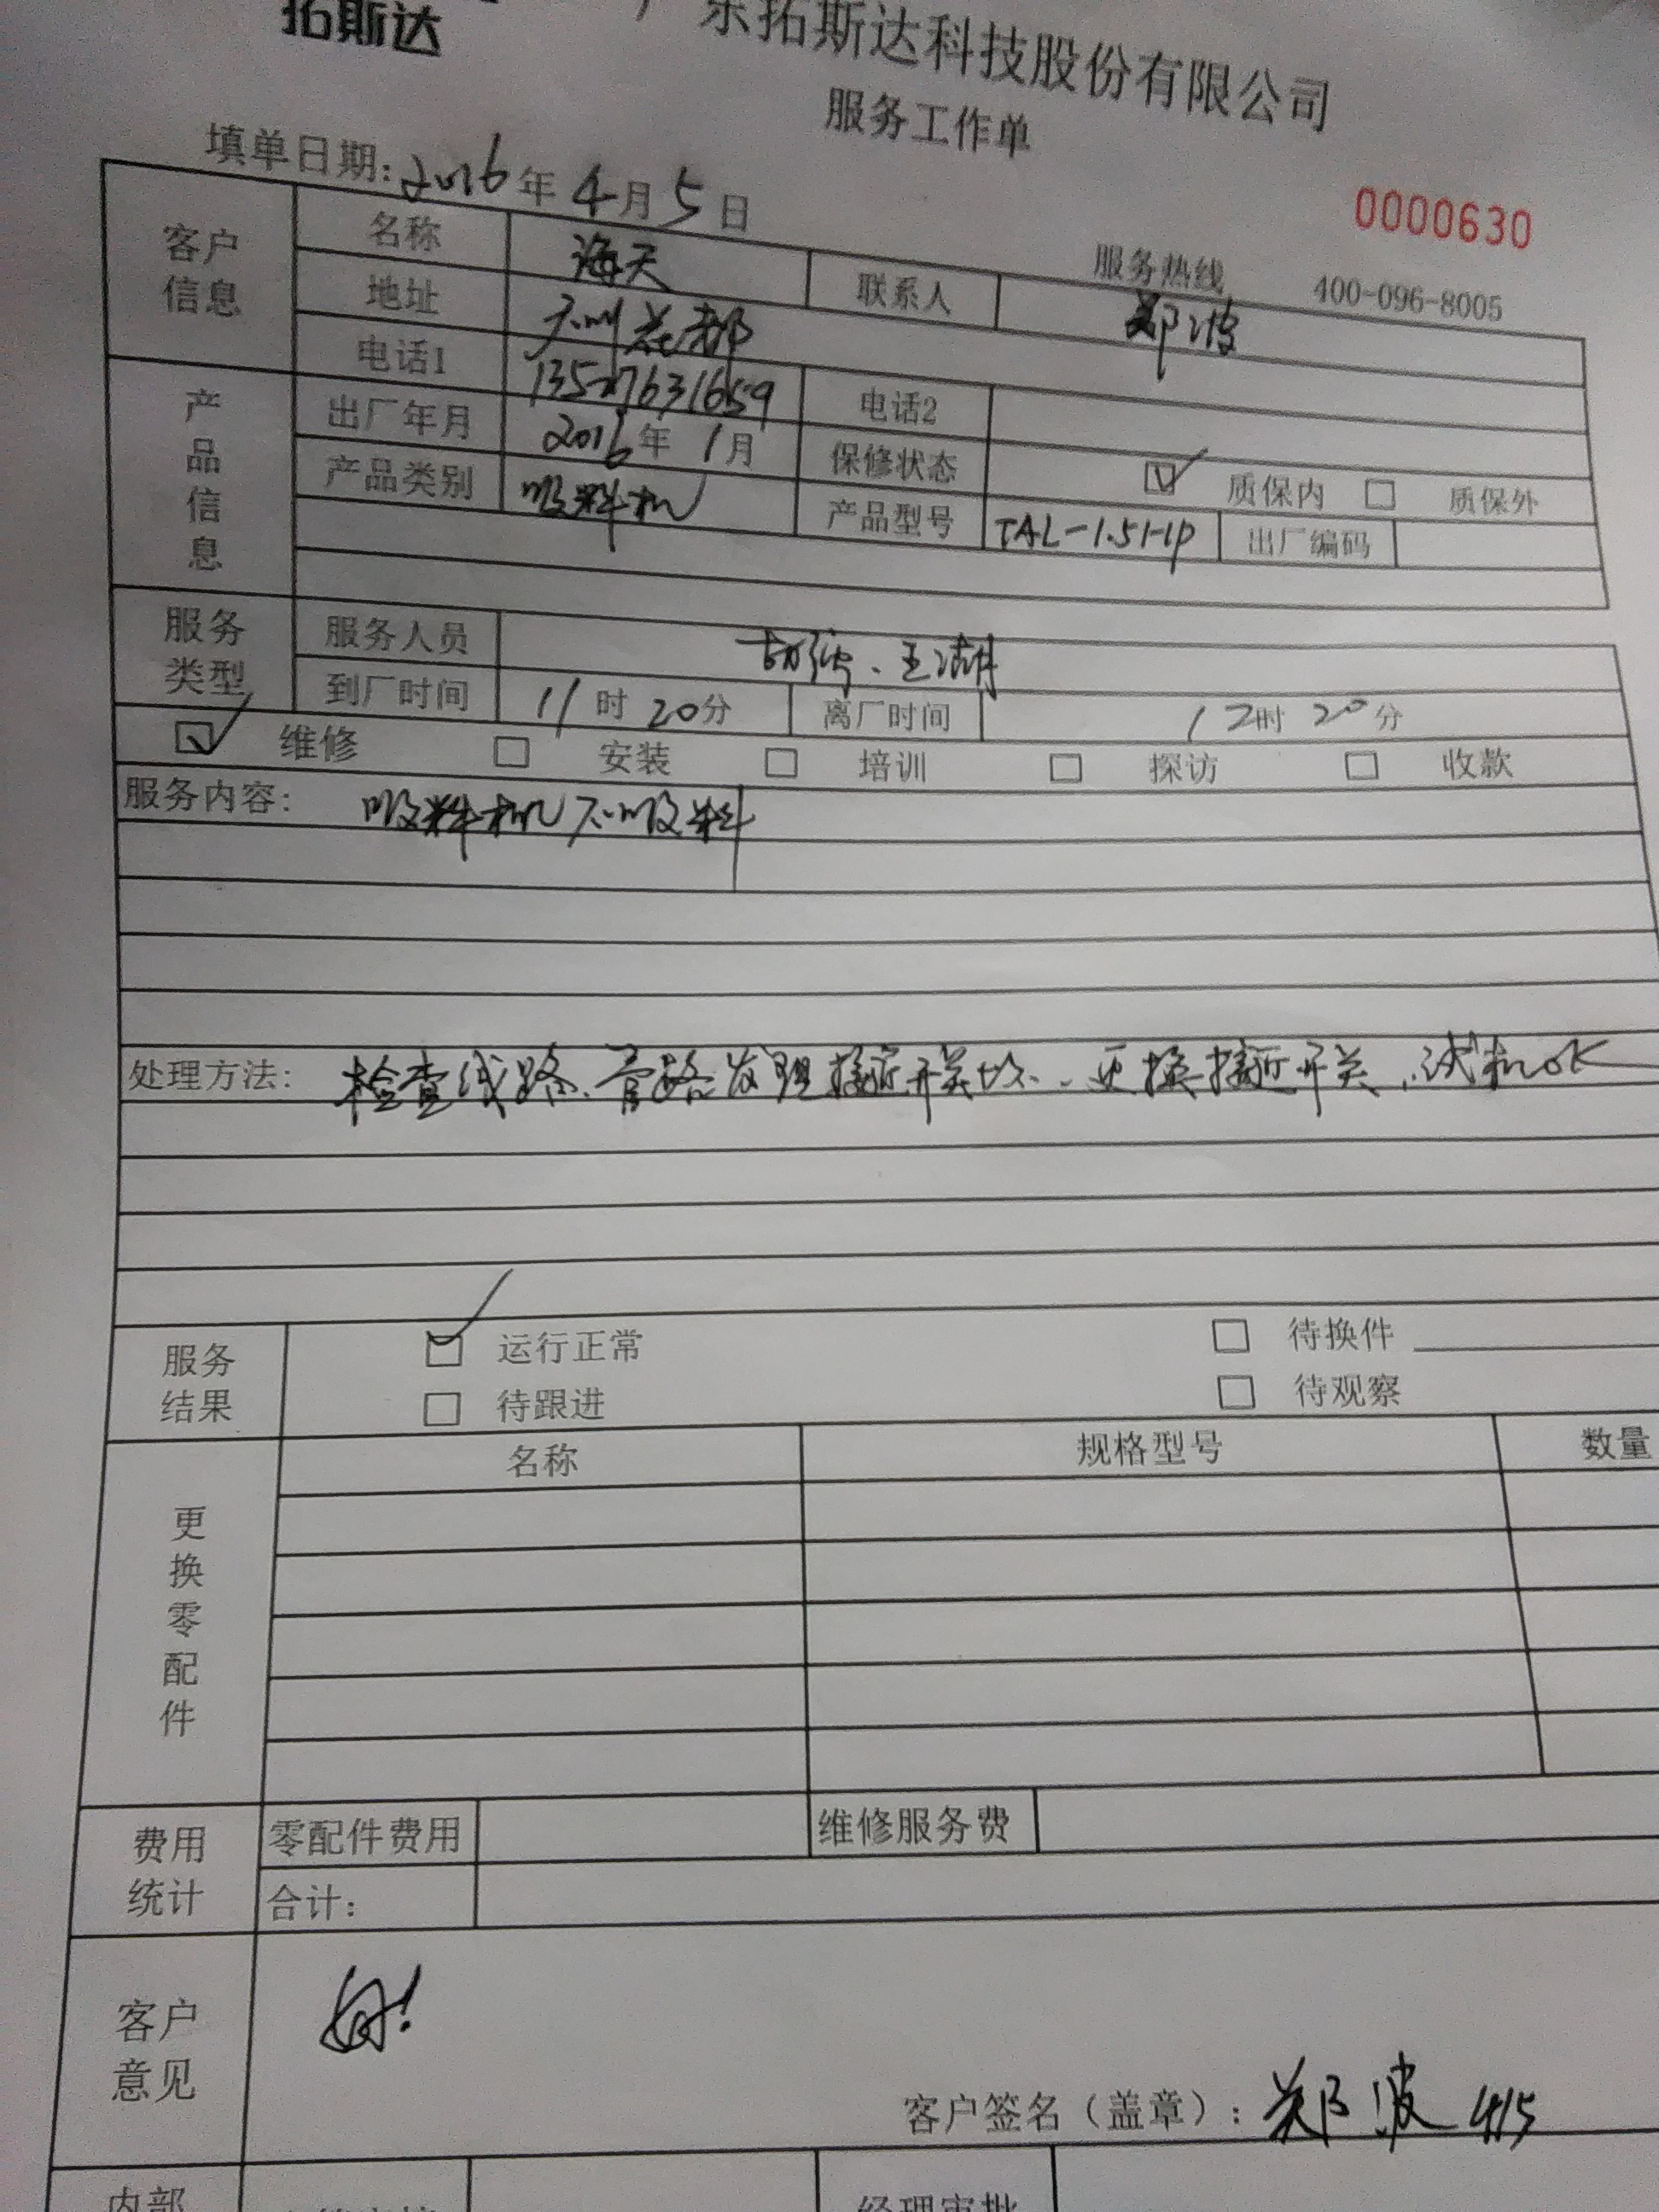 拓斯达 广东拓斯达科技股份有限公司
服务工作单
填单日期: 2016年4月5日
0000630
服务热线 400-096-8005
客户信息 名称 海天 联系人 郑波
地址 广州花都
电话1 13527631659 电话2
产品信息 出厂年月 2016年1月 保修状态 ☑ 质保内 □ 质保外
产品类别 吸料机 产品型号 TAL-1.5HP 出厂编码
服务类型 服务人员 王
到厂时间 11时20分 离厂时间 12时20分
☑ 维修 □ 安装 □ 培训 □ 探访 □ 收款
服务内容: 吸料机不吸料
处理方法: 检查线路、管路发现接近开关坏、更换接近开关,试机OK
服务结果 ☑ 运行正常 □ 待换件
□ 待跟进 □ 待观察
更换零配件 名称 规格型号 数量
费用统计 零配件费用 维修服务费
合计:
客户意见 好!
客户签名(盖章): 郑波 4/5
内部 经理审批